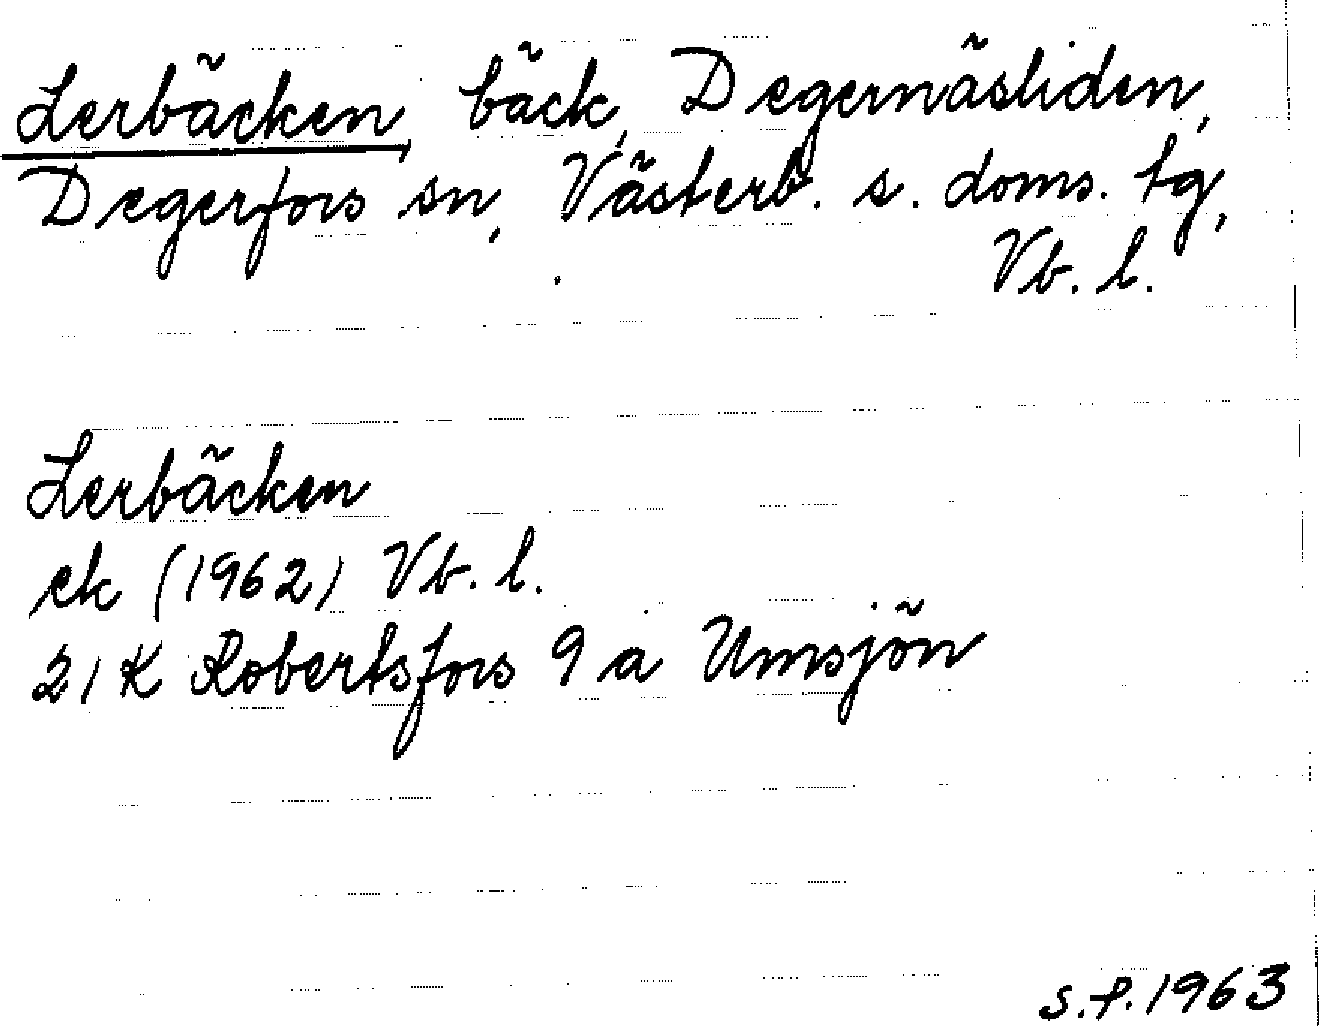 Lerbäcken, bäck, Degernäsliden,
Degerfors sn, Västerb. s. doms. tg,
Vb. l.
Lerbäcken
ek (1962) Vb. l.
21 K Robertsfors 9 a Umsjön
s.f. 1963